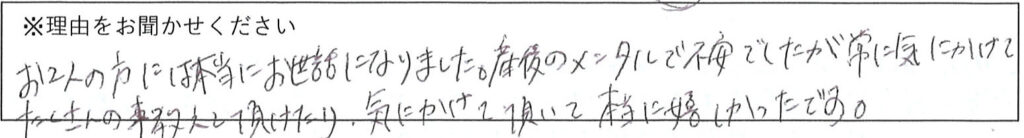 ※理由をお聞かせください
お2人の方には本当にお世話になりました。産後のメンタルで不安でしたが常に気にかけて
たくさんの事教えて頂けたり、気にかけて頂いて本当に嬉しかったです。